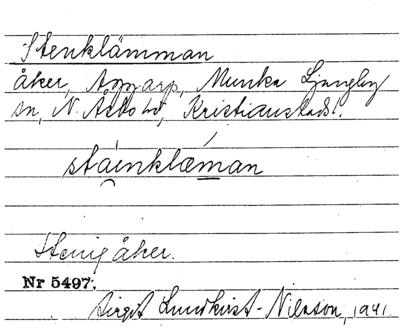 Stenklämman
åker, Äggarp, Munka Ljungby
sn, N. Åsbo hd, Kristianstads l.
stáinklæ̀man
Stenig åker.
Nr 5497.
Birgit Lundkvist-Nilsson, 1941.